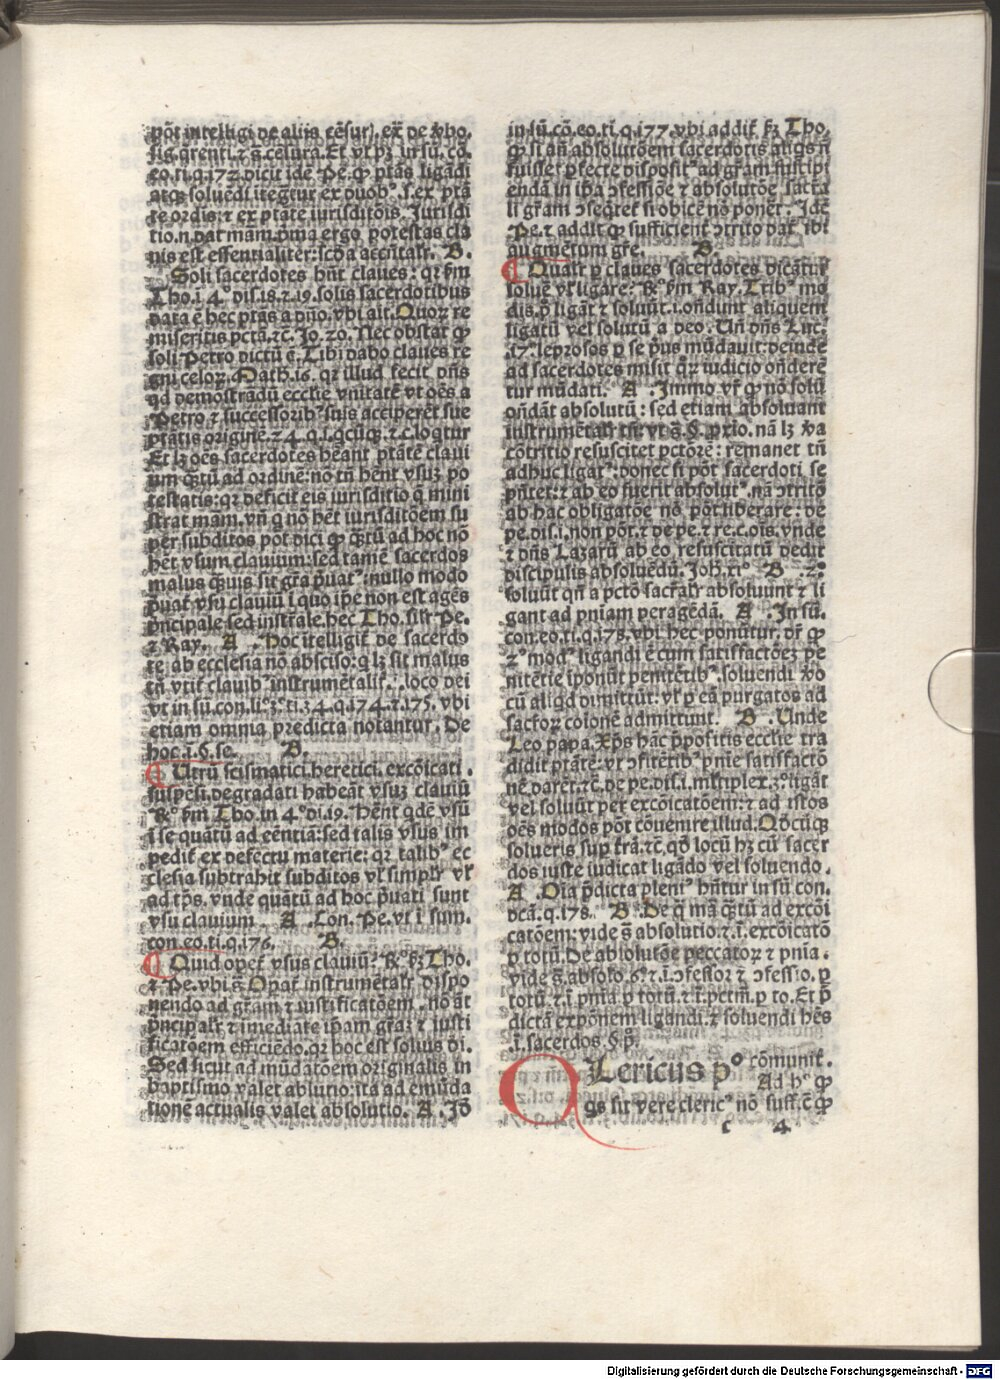 põt intelligi de aliis cẽsuris. ex̃ de v̾bo.
sig. q̃renti. ⁊ s̃. cesura. Et vt pȝ in sũ. cõ.
eo. ti. q. 172. dicit idẽ Pe. ꝙ ptãs ligãdi
atqꝫ soluẽdi itegr̃tur ex duobꝰ. s. ex ptã
te ordis: ⁊ ex ptate iurisditõis. Jurisdi
tio. n. dat mãm. p̃ma ergo potestas cla
uis est essentialiter: scďa accñtalr̃. B.
Soli sacerdotes hñt claues: qꝛ ẜm
Tho. i 4° dis. 18. ⁊. 19. solis sacerdotibus
data ẽ hec ptãs a dño. vbi ait. Quoꝝ re
miseritis pctã. ⁊c̃. Jo. 20. Nec obstat ꝙ
soli Petro dictũ ẽ. Tibi dabo claues re
gni celoꝝ. Math. 16. qꝛ illud fecit dñs
ad demostrãdũ ecclie vnitatẽ vt oẽs a
Petro ⁊ successoribꝰ suis acciperẽt sue
ptatis originẽ. ⁊ 4. q. 1. q̃cũqꝫ. ⁊. c. loq̃tur
Et lȝ oẽs sacerdotes hẽant ptãtẽ claui
um q̃tũ ad ordinẽ: nõ tñ hẽnt vsuȝ po
testatis: qꝛ deficit eis iurisditio q̃ mini
strat mãm. vñ q̃ nõ hẽt iurisditõem su
per subditos põt dici ꝙ q̃tũ ad hoc nõ
hẽt vsum clauium: sed tamẽ sacerdos
malus q̃uis sit gr̃a p̃uatꝰ: nullo modo
p̃uat̃ vsu clauiũ ĩ quo ip̃e non est agẽs
p̃ncipale sed instr̃ale. hec Tho. silr̃ Pe.
⁊ Ray. A. Hoc ĩtelligit̃ de sacerdo
te ab ecclesia nõ absciso: q̃ lȝ sit malus
tñ vtit̃ clauibꝰ instrumẽtalit̃. s. loco dei
vt in sũ. con. li. 3°. ti. 34. q. 174. ⁊. 175. vbi
etiam omnia predicta notantur. De
hoc. 1. 6. se. B.
Utrũ scismatici. heretici. excõicati.
suspẽsi. degradati habeãt vsuȝ clauiũ
℞° ẜm Tho. in 4° di. 19. Hẽnt q̃dẽ vsũ
ĩ se quãtũ ad eẽntiã: sed talis vsus im
pedit̃ ex defectu materie: qꝛ talibꝰ ec
clesia subtrahit subditos vl̃ simplr̃ vl̃
ad tp̃s. vnde quãtũ ad hoc p̃uati sunt
vsu clauium. A. Con. Pe. vt ĩ sum.
con. eo. ti. q. 176. B.
Quid opet̃ vsus clauiũ. ℞° ẜȝ Tho.
⁊ Pe. vbi s̃. Opat̃ instrumẽtalr̃ dispo
nendo ad gr̃am ⁊ iustificatõem. nõ aũt
p̃ncipalr̃ ⁊ imediate ip̃am gr̃aȝ ⁊ iusti
ficatõem efficiẽdo. qꝛ hoc est solius di.
Sed sicut ad mũdatõem originalis in
baptismo valet ablutio: ita ad emũda
tionẽ actualis valet absolutio. A. Jď
in sũ. cõ. eo. ti. q. 177. vbi addit̃ ẜȝ Tho.
ꝙ si añ absolutõem sacerdotis aliq̃s ñ
fuisset ꝑfecte dispositꝰ ad gr̃am suscipi
endã in ip̃a ↄfessiõe ⁊ absolutõe sacra
li gr̃am ↄseq̃ret̃ si obicẽ nõ ponẽt. Idẽ
Pe. ⁊ addit ꝙ sufficient̃ ↄtrito dat̃ ibi
augmẽtum gr̃e. B.
Qualr̃ ꝑ claues sacerdotes dicãtur
soluẽ vl̃ ligare: ℞° ẜm Ray. Tribꝰ mo
dis. p̃ ligãt ⁊ soluũt. i. oñdunt aliquem
ligatũ vel solutũ a deo. Uñ dñs Luc.
17. leprosos ꝑ se p̃us mũdauit: deinde
ad sacerdotes misit q̃r iudicio oñdere
tur mũdati. A. Immo vr̃ ꝙ nõ solũ
oñdãt absolutũ: sed etiam absoluant
instrumẽtalr̃ tñ: vt s̃. §. ꝓxĩo. nã lȝ v̾a
cõtritio resuscitet pctõrẽ: remanet tñ
adhuc ligatꝰ: donec si põt sacerdoti se
pñtet: ⁊ ab eo fuerit absolutꝰ. nã ↄtritõ
ab hac obligatõe nõ põt liberare: de
pe. dis. 1. non põt. ⁊ de pe. ⁊ re. c. oĩs. vnde
⁊ dñs Lazarũ ab eo resuscitatũ dedit
discipulis absoluẽdũ. Joh. xi° B. 2°
soluũt qñ a pctõ sacralr̃ absoluunt ⁊ li
gant ad pñiam peragẽdã. A. In sũ.
con. eo. ti. q. 178. vbi hec ponũtur. dr̃ ꝙ
2ꝰ modꝰ ligandi ẽ cum satisfactõeȝ pe
nitẽtie ĩponũt penitẽtibꝰ. soluendi v̾o
cũ aliq̃d dimittũt: vl̃ ꝑ eã purgatos ad
sacroꝝ coionẽ admittunt. B. Unde
Leo papa. Xp̃s hãc p̃positis ecclie tra
didit ptãtẽ: vt ↄfitẽtibꝰ pñie satisfactõ
nẽ darẽt. ⁊c̃. de pe. dis. 1. ml̃tiplex. 3° ligãt
vel soluũt per excõicatõem: ⁊ ad istos
oẽs modos põt cõuenire illud. Qďcũqꝫ
solueris suꝑ tr̃ã. ⁊c̃. qď locũ hȝ cũ sacer
dos iuste iudicat ligãdo vel soluendo.
A. Oĩa p̃dicta pleniꝰ hñtur in sũ con.
dcã. q. 178. B. De q̃ mã q̃tũ ad excõi
catõem: vide s̃ absolutio. ⁊. ĩ. excõicatõ
ꝑ totũ. De absolutõe peccatoꝝ ⁊ pñia.
vide s̃. absolo. 6° ⁊. ĩ. ↄfessoꝛ ⁊ ↄfessio. ꝑ
totũ. ⁊. ĩ. pñia. ꝑ totũ. ⁊. ĩ. pctm̃. ꝑ to. Et p̃
dictã expõnem ligandi. ⁊ soluendi hẽs
.ĩ. sacerdos. §. p̃.
Clericus p° cõmunit̃.
Ad h° ꝙ
q̃s sit vere clericꝰ nõ suff. c̃ ꝙ
c 4
Digitalisierung gefördert durch die Deutsche Forschungsgemeinschaft - DFG